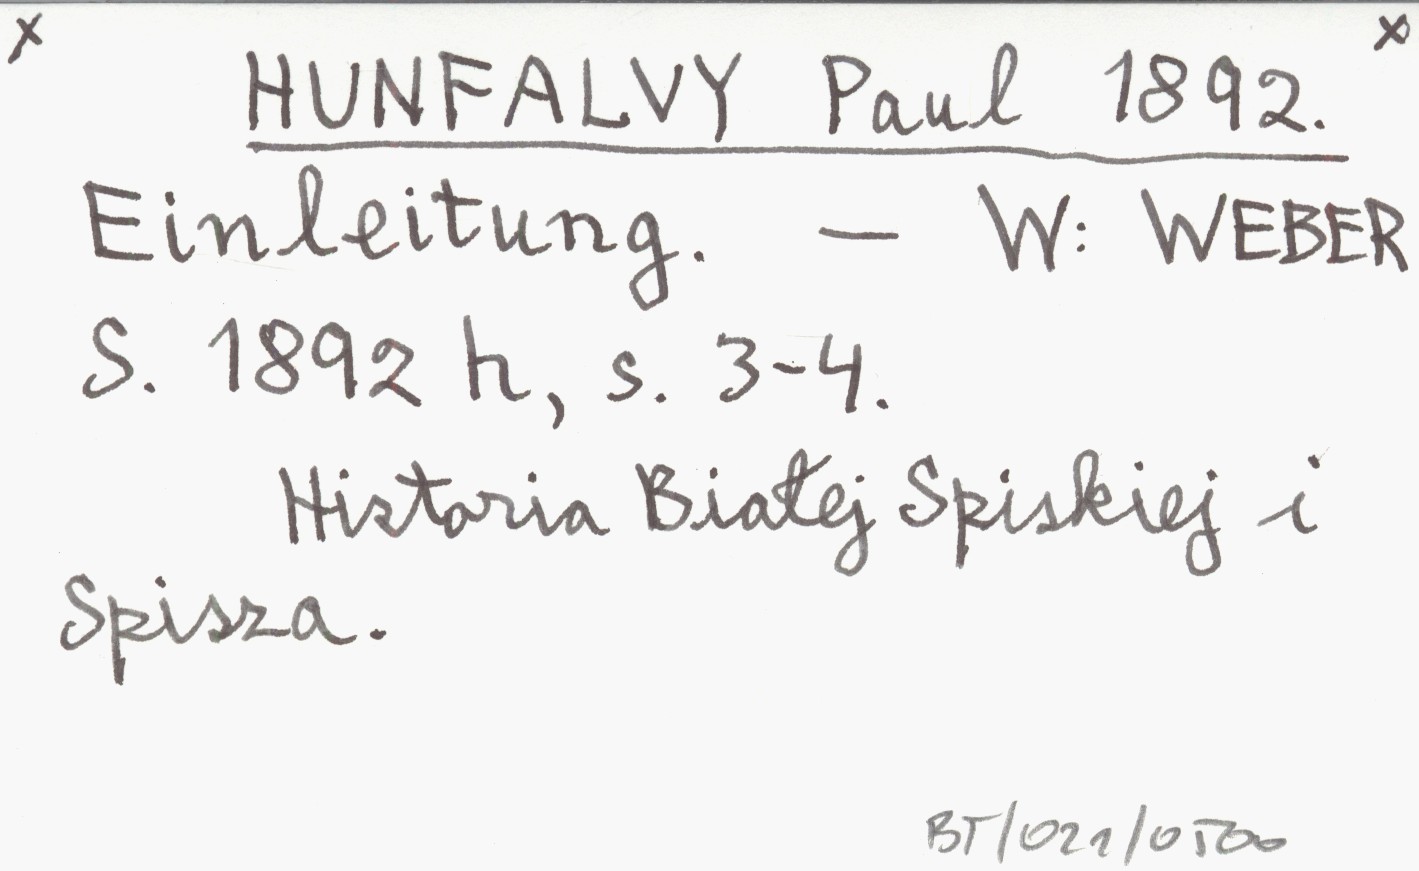 x x
HUNFALVY Paul 1892.
Einleitung. — W: WEBER
S. 1892 h, s. 3-4.
Historia Białej Spiskiej i
Spisza.
BT/021/0500